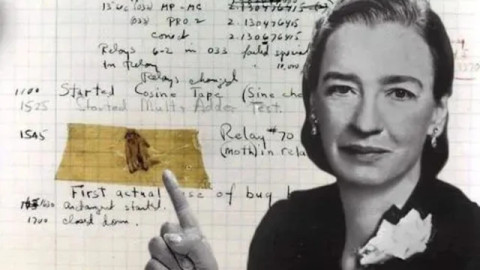 13'00 (032) MP - MC 2.130476415
(033) PRO 2 2.130476415
conv 2.130676415
Relays 6-2 in 033 failed special
in Relay
Relays changed
1100 Started Cosine Tape (Sine
1525 Started Mult+ Adder Test.
1545 Relay #70
(moth) in
First actual of bug
antangent started.
1700 closed down.